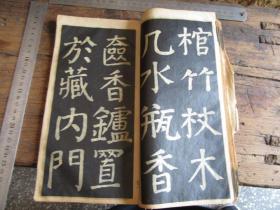 棺竹杖木
几水瓶香
奩香鑪置
於藏内門